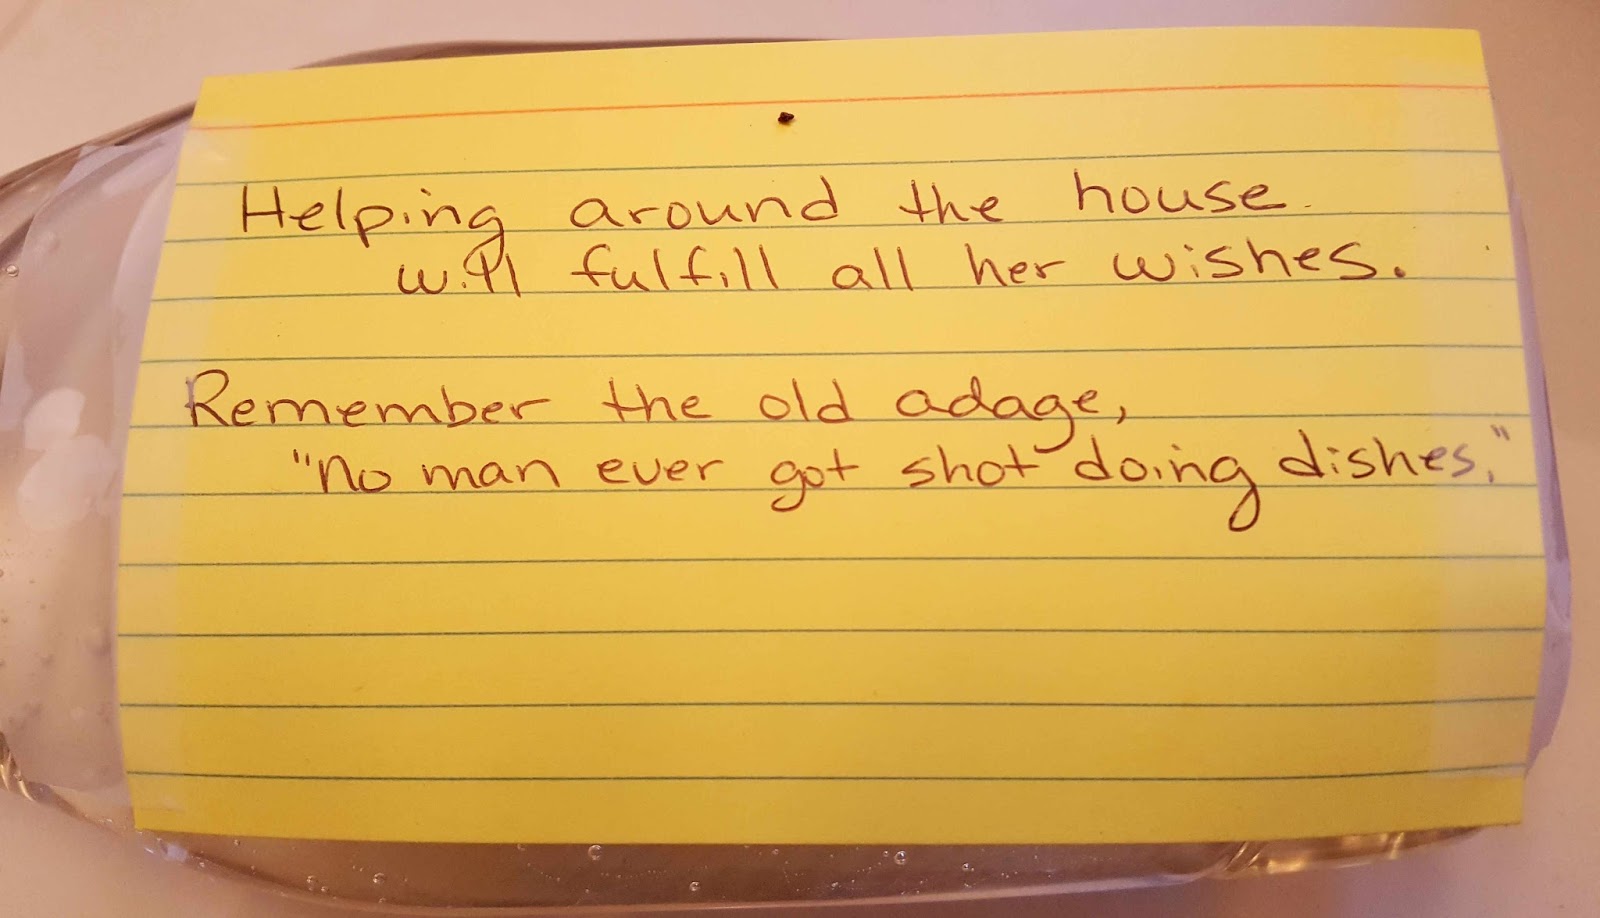 Helping around the house
will fulfill all her wishes.
Remember the old adage,
"No man ever got shot doing dishes."